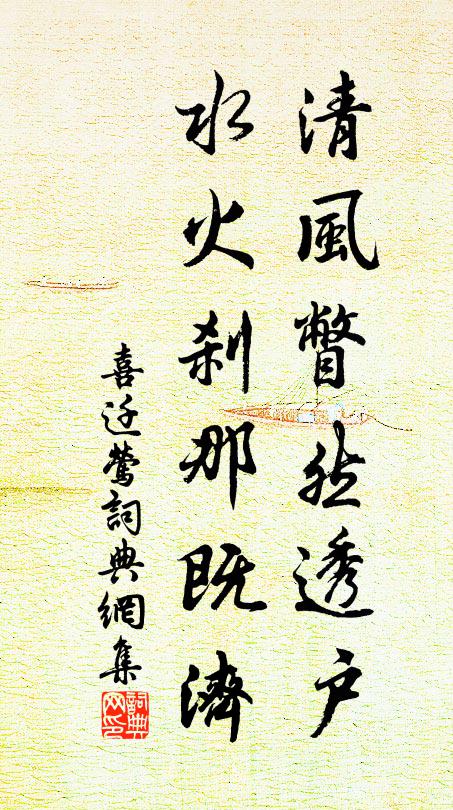 清風瞥然透戶
水火刹那既濟
喜迁鶯詞典網集
詞典网印